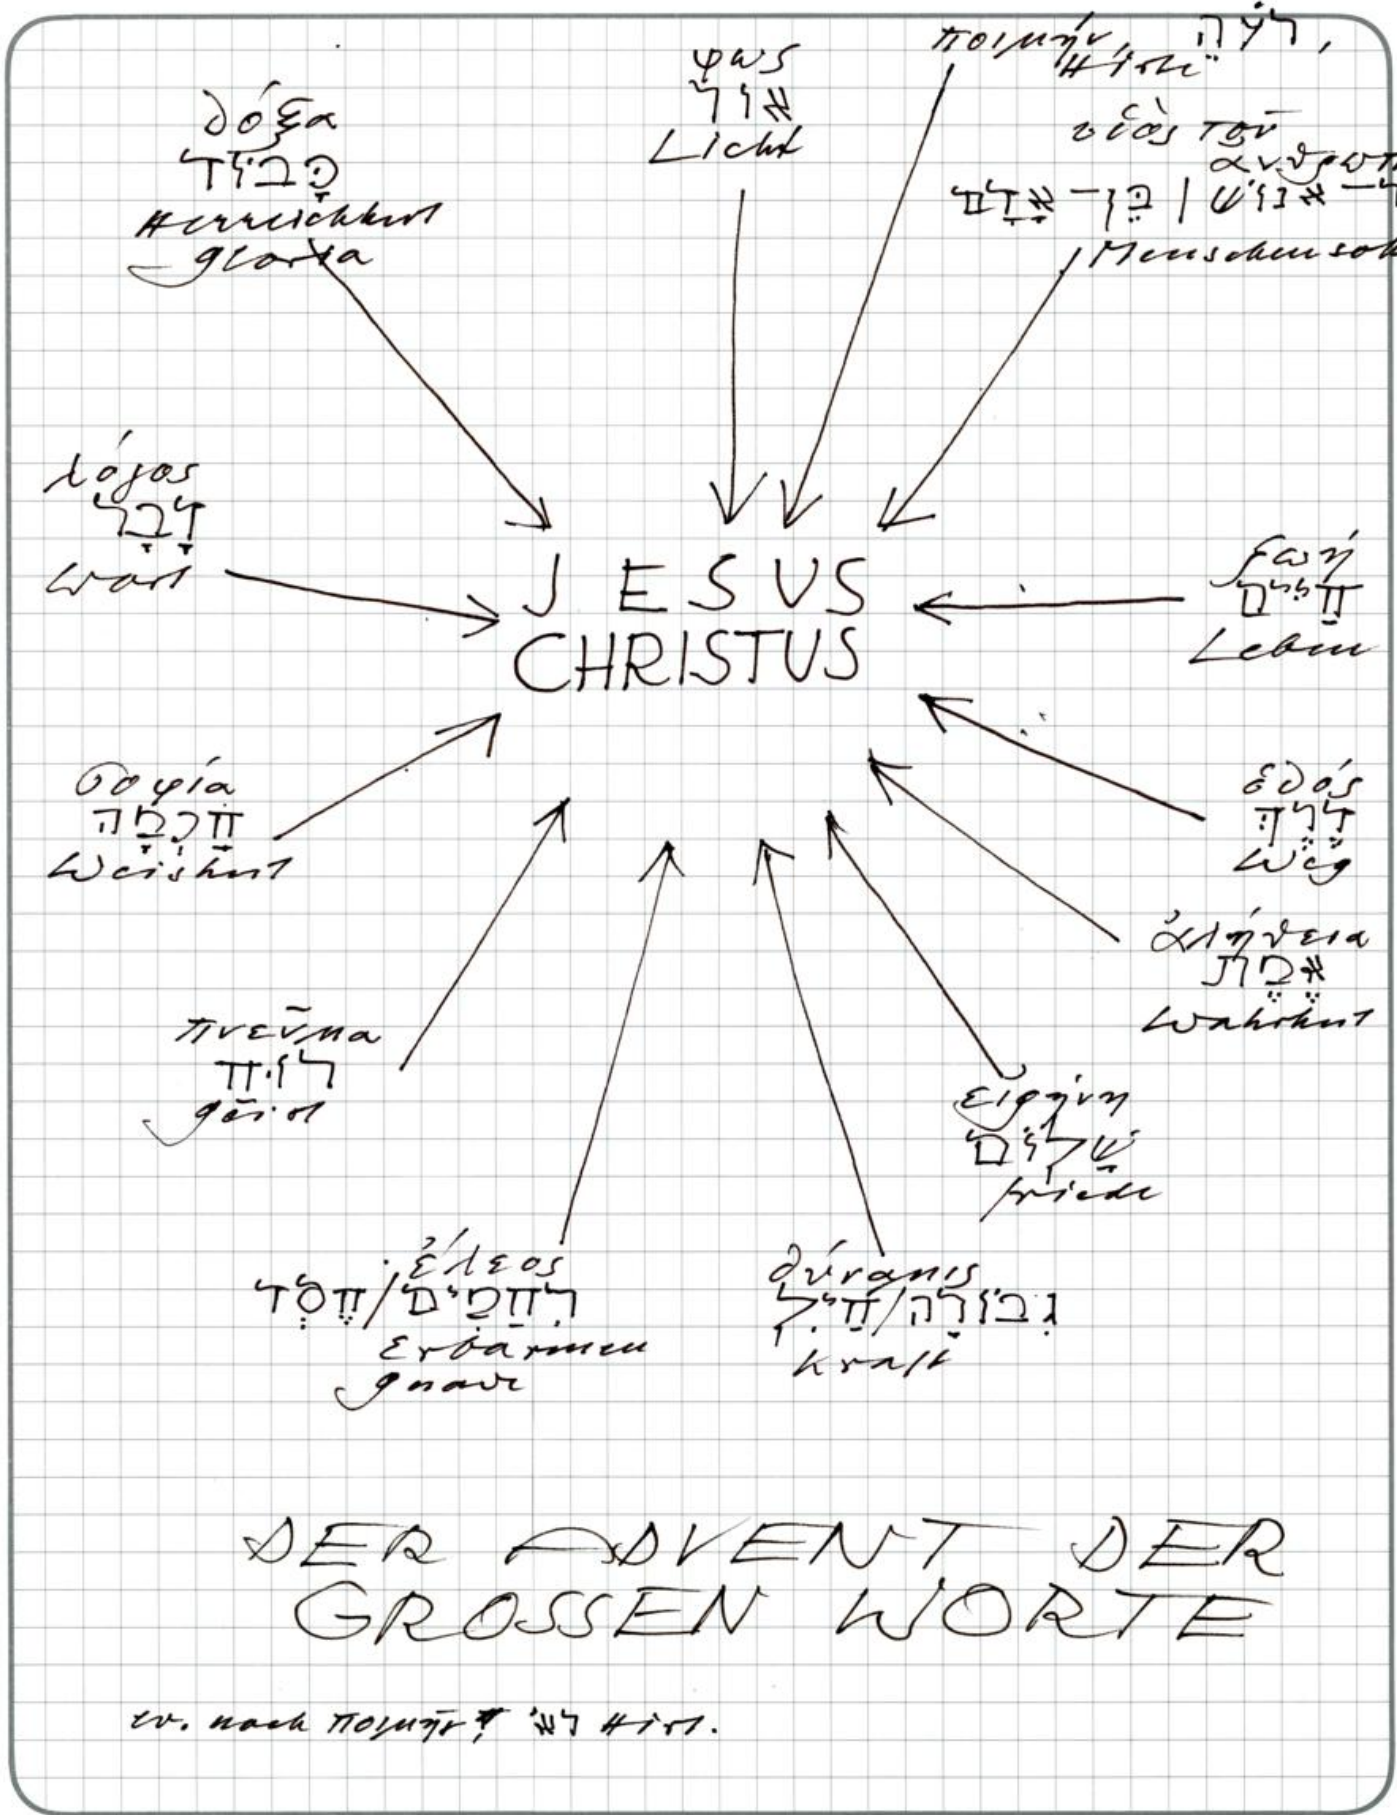 δόξα
כָּבוֹד
Herrlichkeit
gloria
φως
אוֹר
Licht
ποιμήν, רֹעֶה,
Hirte
υἱὸς τοῦ
ανθρωπ
אֱנוֹשׁ / בֶּן־אָדָם
Menschensoh
λόγος
דָּבָר
Wort
JESUS
CHRISTUS
ζωή
חַיִּים
Leben
σοφία
חָכְמָה
Weisheit
ὁδός
דֶּרֶךְ
Weg
ἀλήθεια
אֱמֶת
Wahrheit
πνεῦμα
רוּחַ
geist
εἰρήνη
שָׁלוֹם
friede
ἔλεος
רַחֲמִים/חֶסֶד
Erbarmen
gnade
δύναμις
גְּבוּרָה/חַיִל
Kraft
DER ADVENT DER
GROSSEN WORTE
ev. noch ποιμήν Hirt.